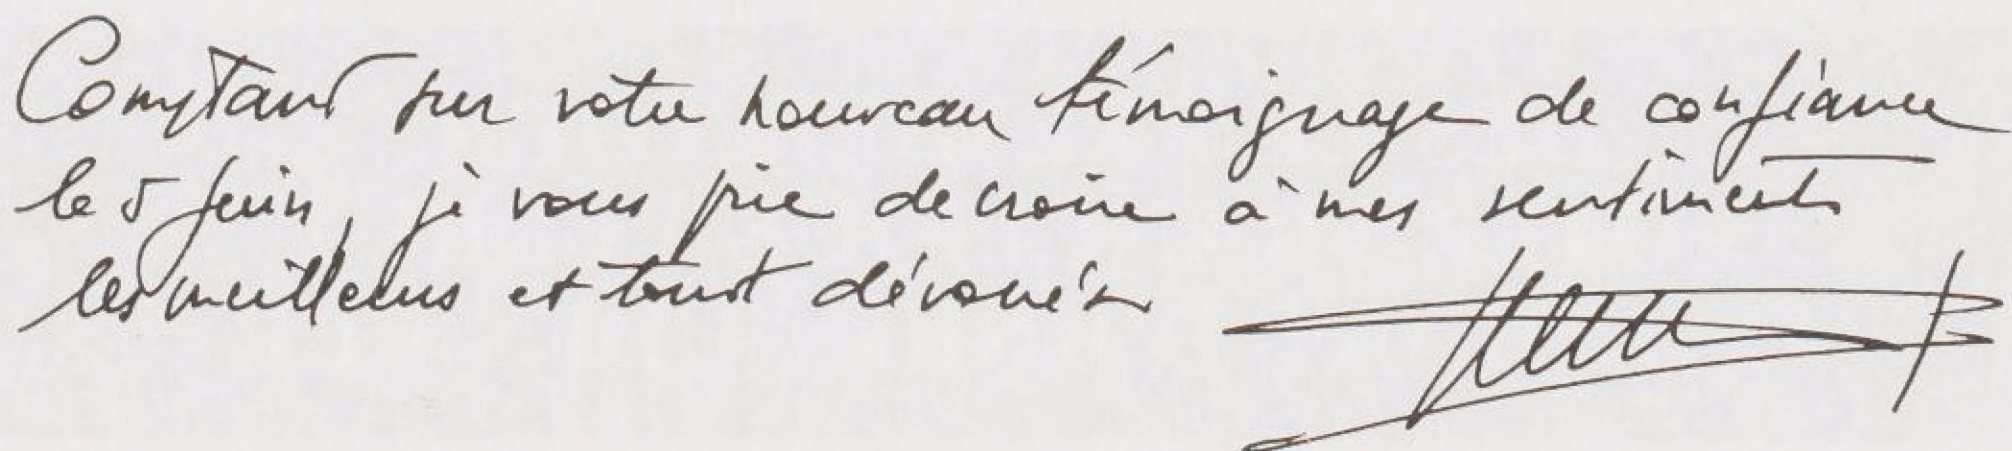 Comptant sur votre nouveau témoignage de confiance
le 5 Juin, je vous prie de croire à mes sentiments
les meilleurs et tout dévoués